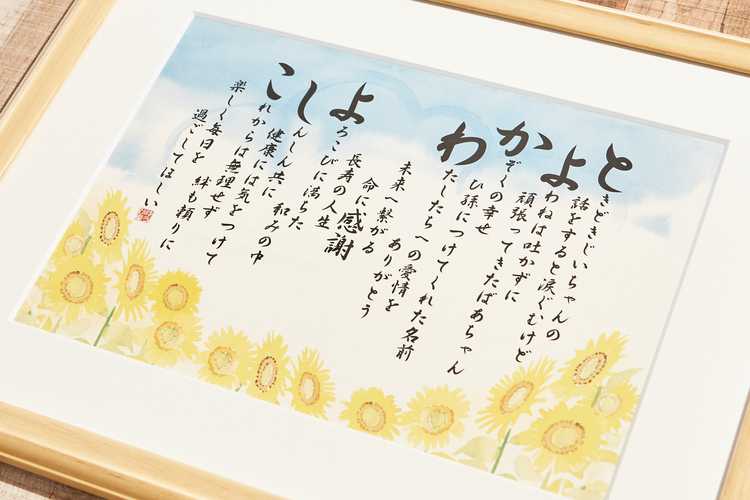 ときどきじいちゃんの
話をすると涙ぐむけど
よわねは吐かずに
頑張ってきたばあちゃん
かぞくの幸せ
ひ孫につけてくれた名前
わたしたちへの愛情を
ありがとう
未来へ繋がる
命に感謝
長寿の人生
よろこびに満ちた
しんしん共に 和みの中
健康には気をつけて
これからは無理せず
楽しく毎日を 絆も頼りに
過ごしてほしい